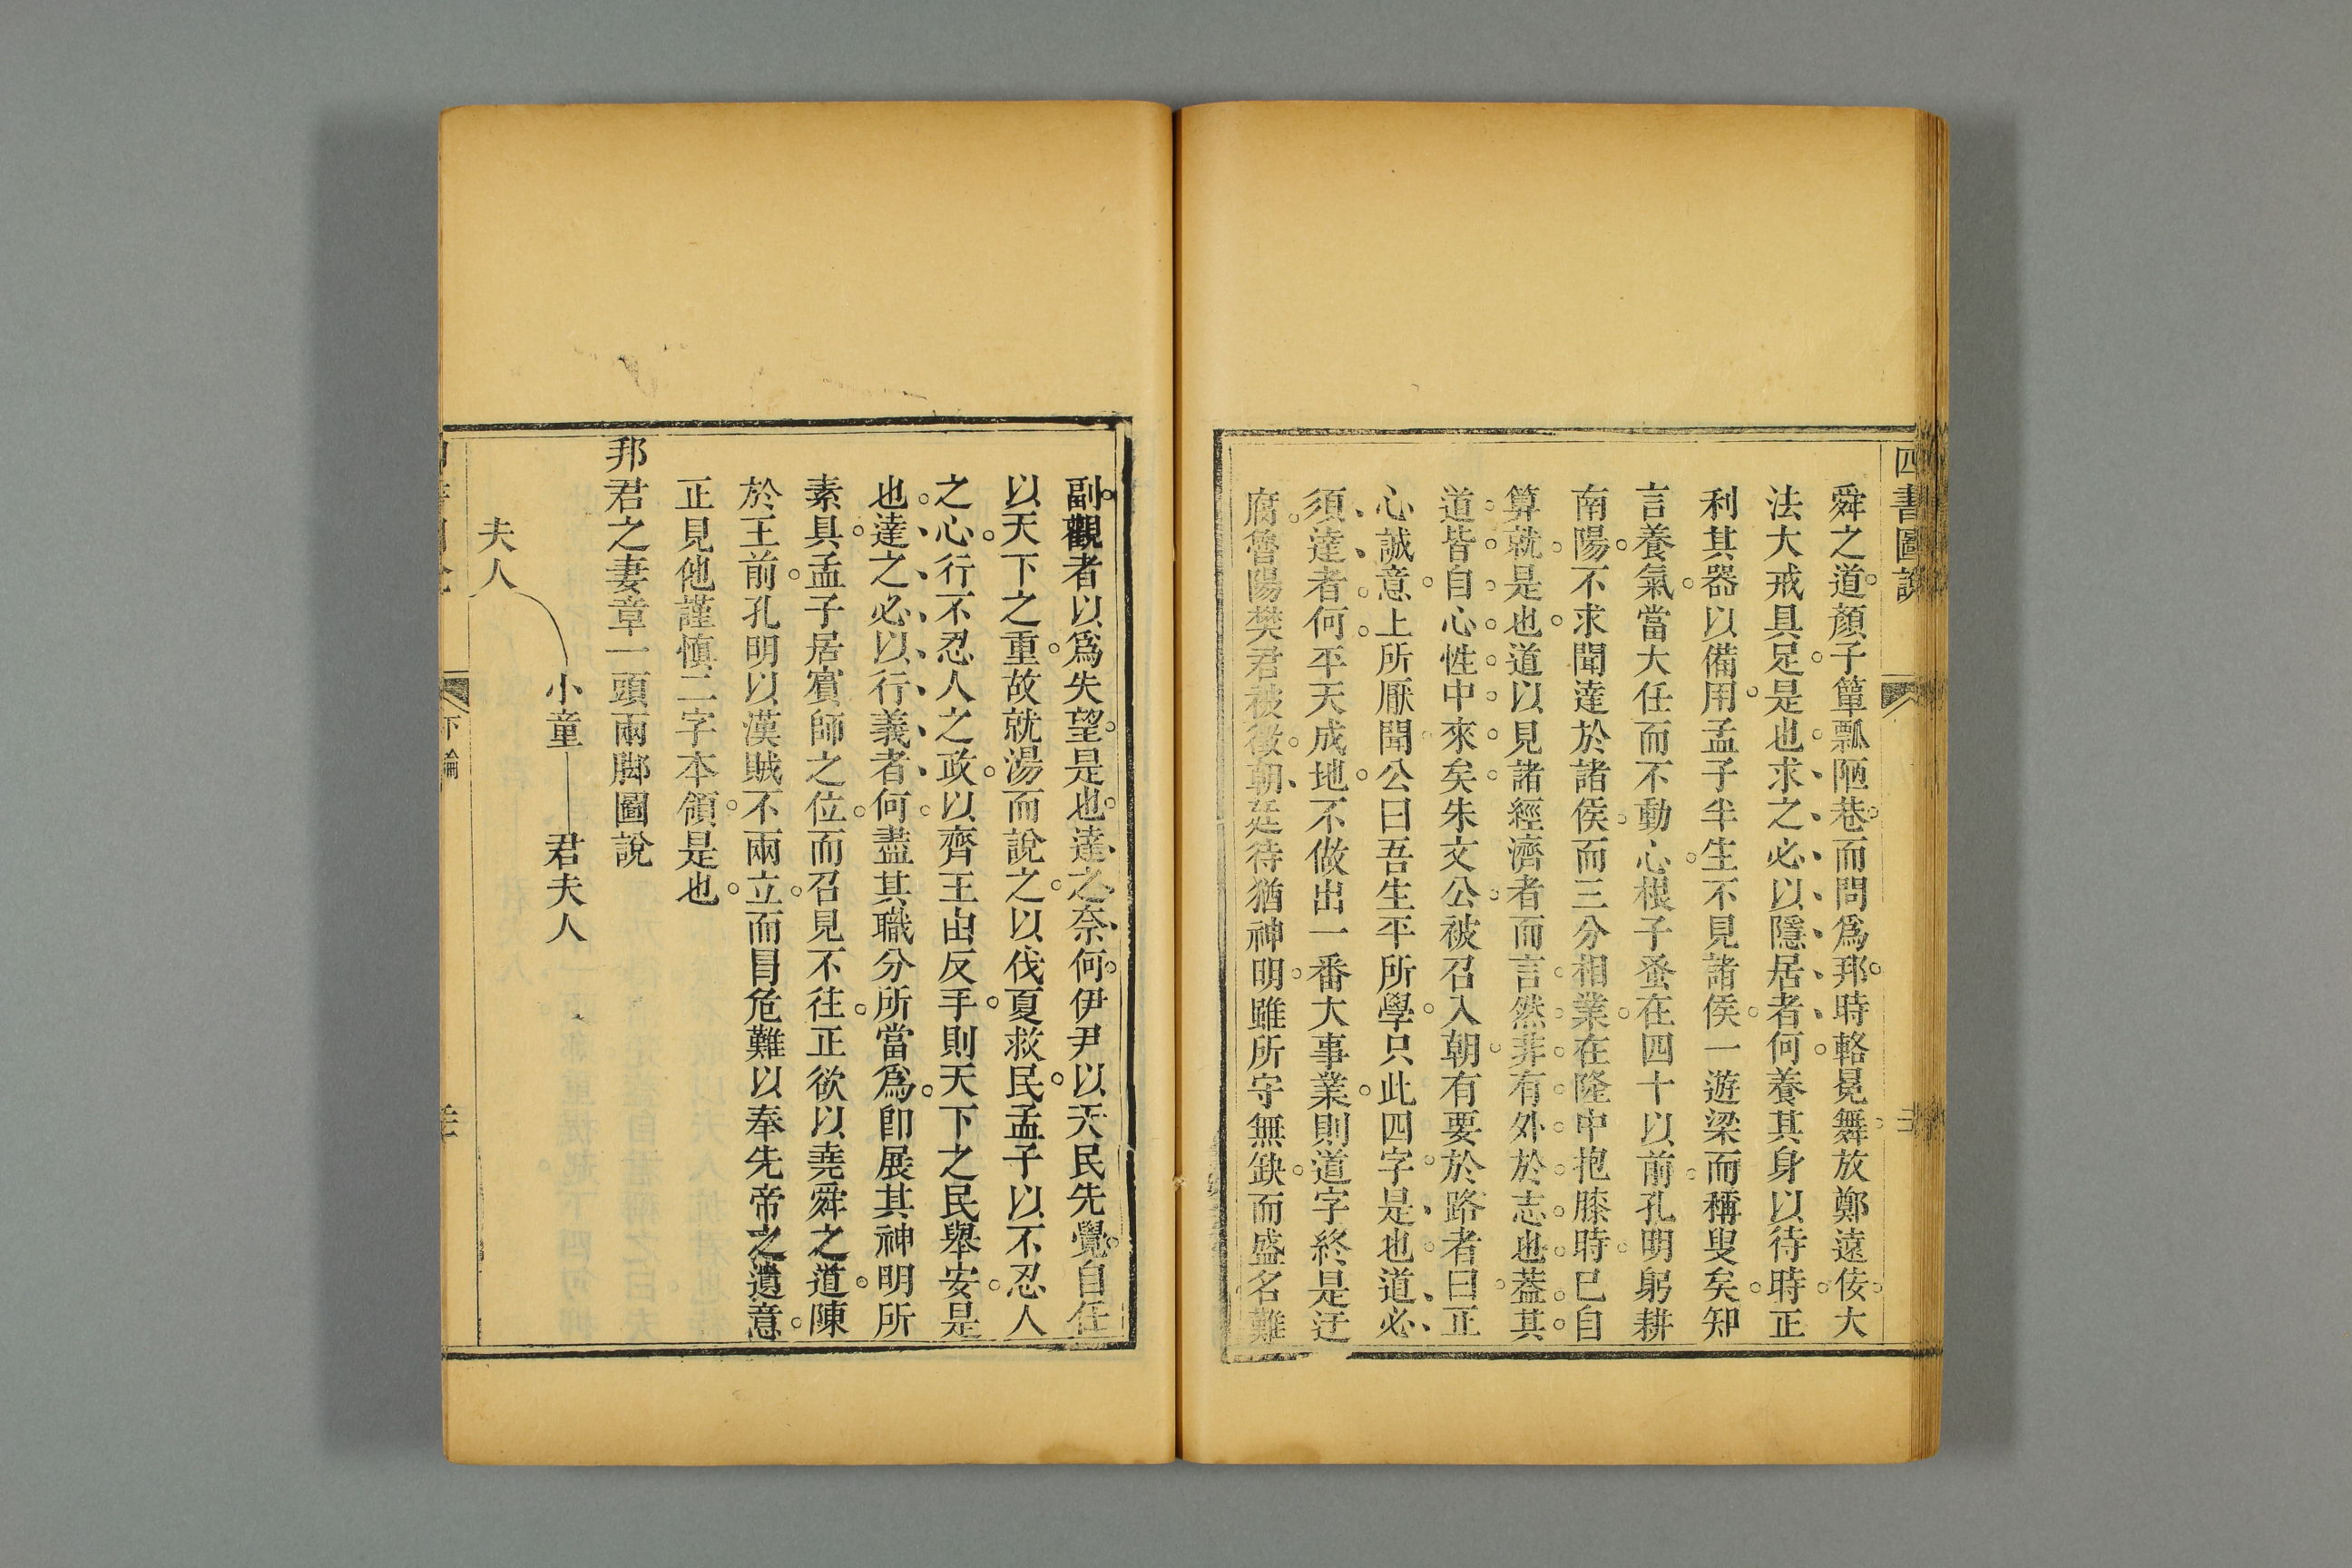 四書圖說
舜之道顏子簞瓢陋巷而問爲邦時輅冕舞放鄭遠佞大
法大戒具足是也求之必以隱居者何養其身以待時正
利其器以備用孟子半生不見諸侯一遊梁而稱叟矣知
言養氣當大任而不動心根子蚤在四十以前孔明躬耕
南陽不求聞達於諸侯而三分相業在隆中抱膝時已自
算就是也道以見諸經濟者而言然非有外於志也葢其
道皆自心性中來矣朱文公被召入朝有要於路者曰正
心誠意上所厭聞公曰吾生平所學只此四字是也道必
須達者何平天成地不做出一番大事業則道字終是迂
腐魯陽樊君被徵朝廷待猶神明雖所守無缺而盛名難
副觀者以爲失望是也達之奈何伊尹以天民先覺自任
以天下之重故就湯而說之以伐夏救民孟子以不忍人
之心行不忍人之政以齊王由反手則天下之民舉安是
也達之必以行義者何盡其職分所當爲卽展其神明所
素具孟子居賓師之位而召見不往正欲以堯舜之道陳
於王前孔明以漢賊不兩立而冒危難以奉先帝之遺意
正見他謹愼二字本領是也
邦君之妻章一頭兩脚圖說
小童 君夫人
夫人
下論